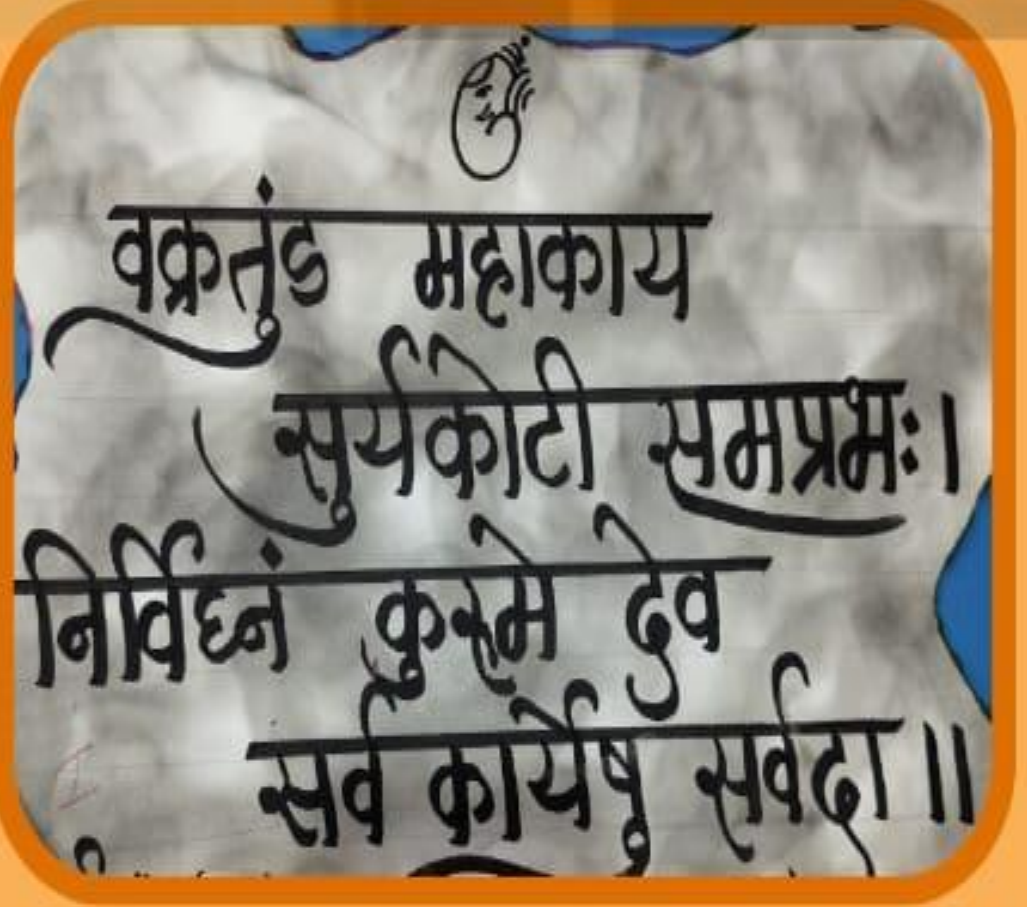 वक्रतुंड महाकाय
सुर्यकोटी समप्रभः।
निर्विघ्नं कुरुमे देव
सर्व कार्येषु सर्वदा॥